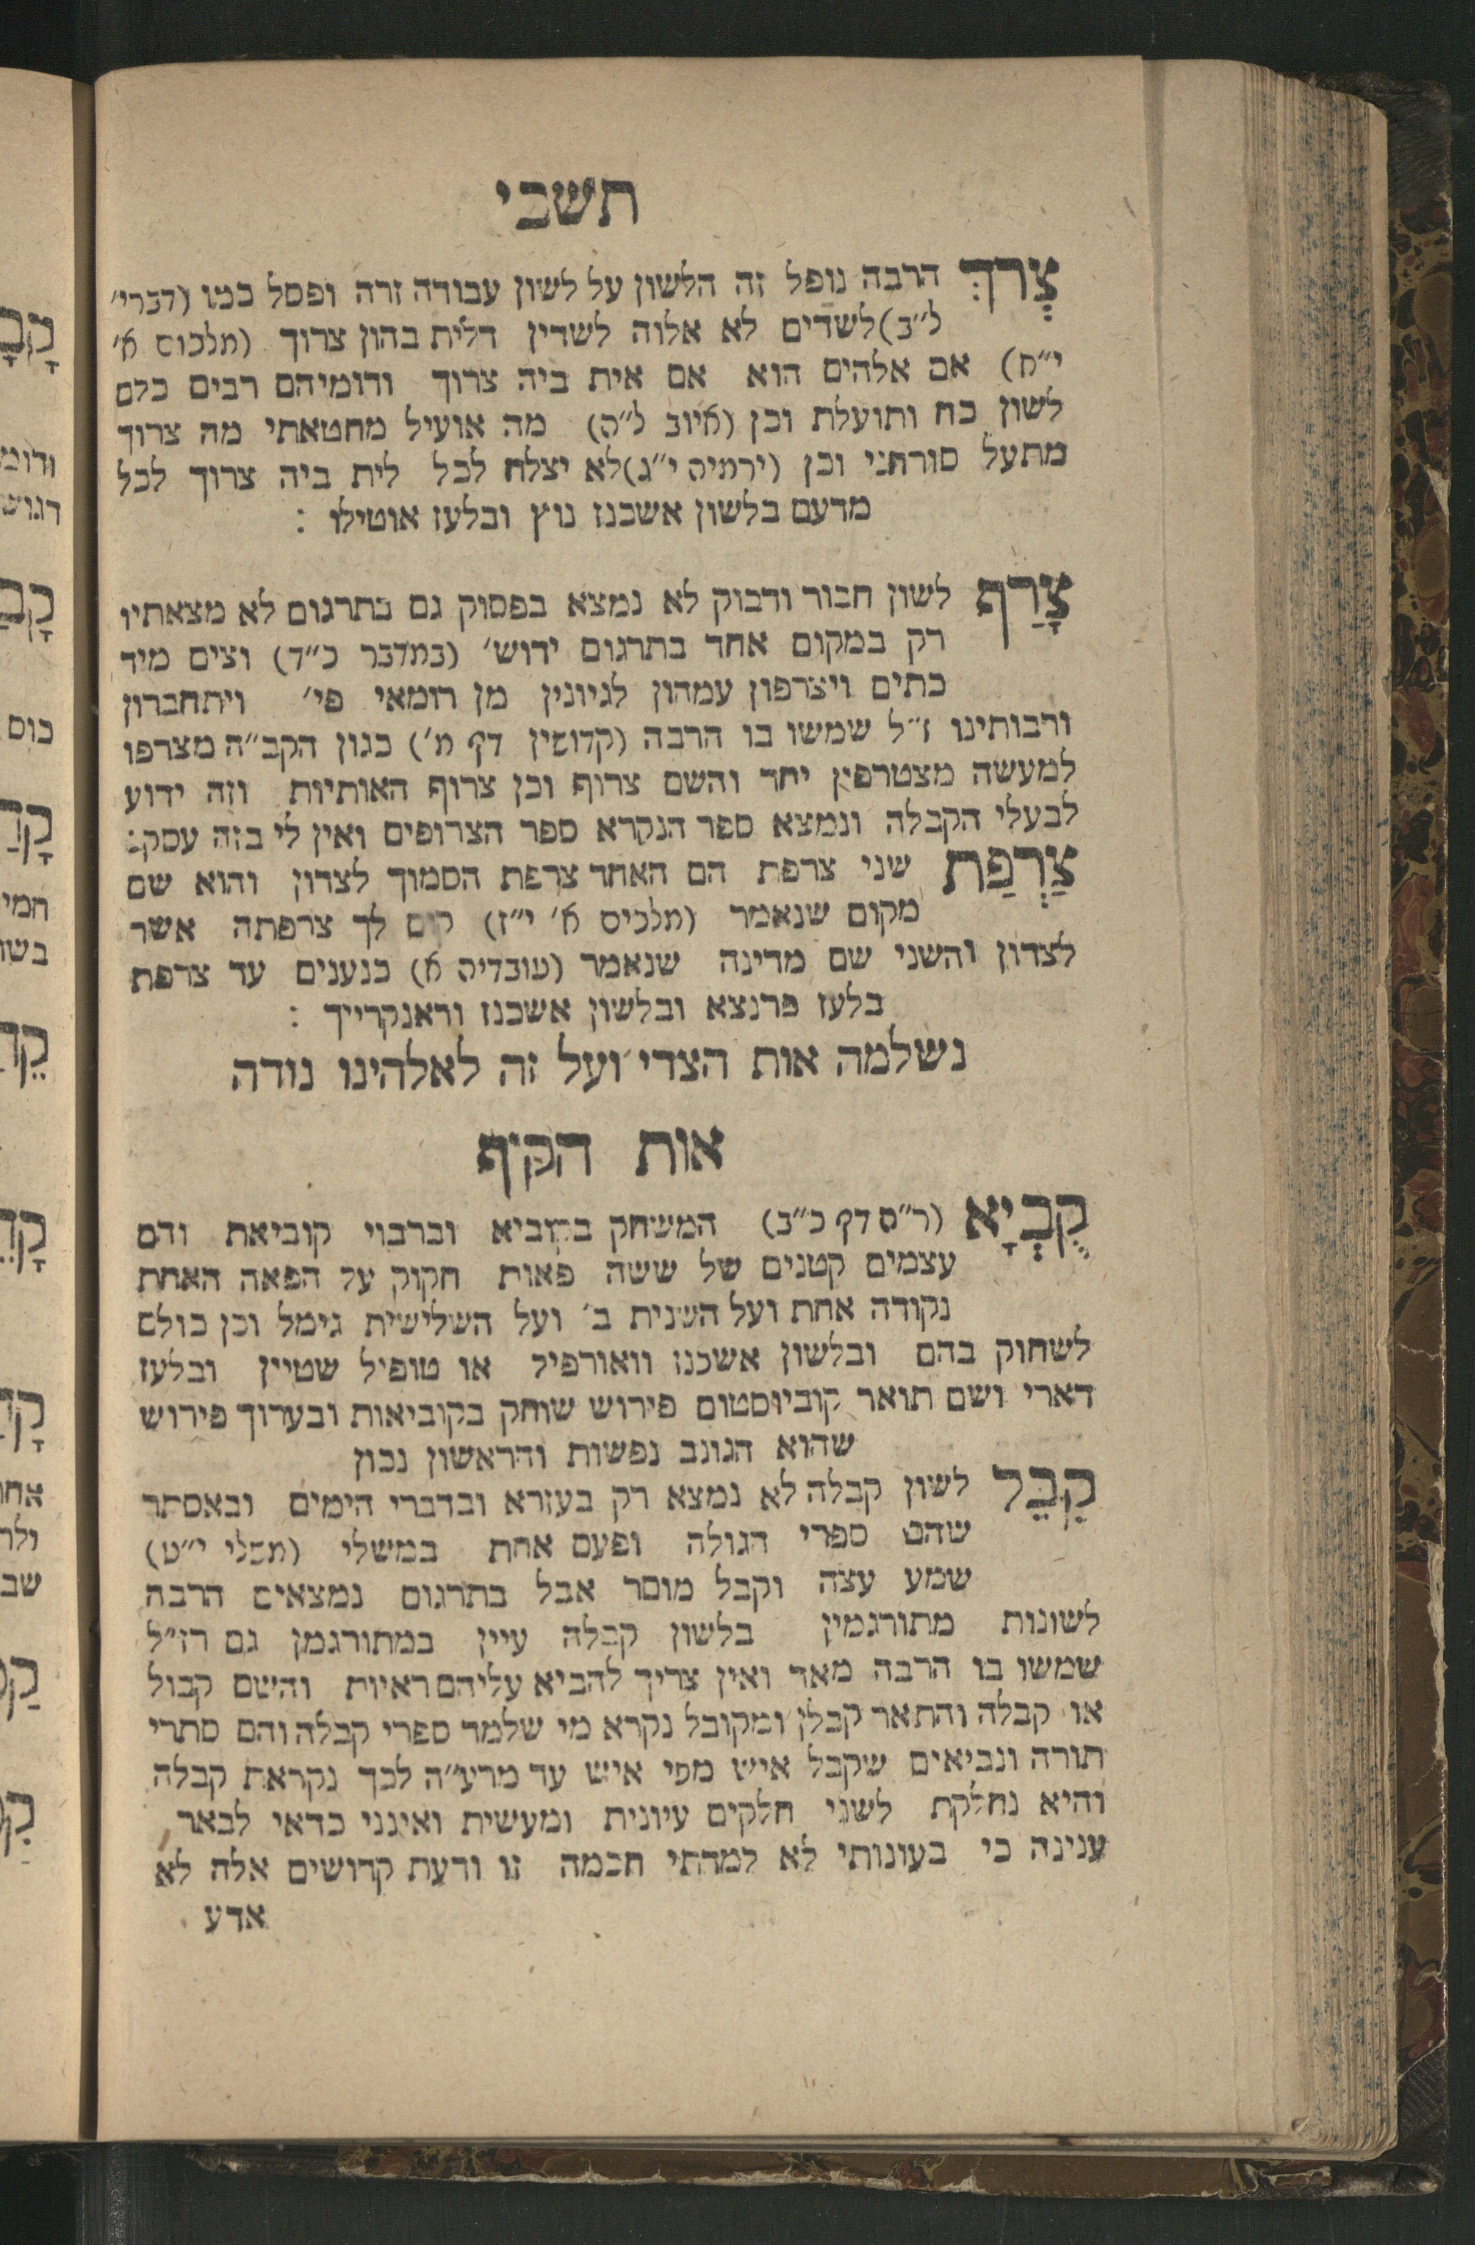 תשבי
צְרךְ הרבה נופל זה הלשון על לשון עבודה זרה ופסל כמו (דברי׳
ל״ב) לשדים לא אלוה לשדין דלית בהון צרוך (מלכים א׳
י״ח) אם אלהים הוא אם אית ביה צרוך ודומיהם רבים כלם
לשון כח ותועלת וכן (איוב ל״ה) מה אועיל מחטאתי מה צרוך
מתעל סורחני וכן (ירמיה י״ג) לא יצלח לכל לית ביה צרוך לכל
מדעם בלשון אשכנז נוץ ובלעז אוטילו :
צָרַף לשון חבור ודבוק לא נמצא בפסוק גם בתרגום לא מצאתיו
רק במקום אחד בתרגום ירוש׳ (במדבר כ״ד) וצים מיד
כתים ויצרפון עמהון לגיונין מן רומאי פי׳ ויתחברון
ורבותינו ז״ל שמשו בו הרבה (קדושין דף מ׳) כגון הקב״ה מצרפו
למעשה מצטרפין יחד והשם צרוף וכן צרוף האותיות וזה ידוע
לבעלי הקבלה ונמצא ספר הנקרא ספר הצרופים ואין לי בזה עסק :
צַרְפַת שני צרפת הם האחד צרפת הסמוך לצדון והוא שם
מקום שנאמר (מלכים א׳ י״ז) קום לך צרפתה אשר
לצדון והשני שם מדינה שנאמר (עובדיה א) כנענים עד צרפת
בלעז פרנצא ובלשון אשכנז וראנקרייך :
נשלמה אות הצדי ועל זה לאלהינו נודה
אות הקוף
קֻבְיָא (ר״ה דף כ״ב) המשחק בקוביא וברבוי קוביאת והם
עצמים קטנים של ששה פאות חקוק על הפאה האחת
נקודה אחת ועל השנית ב׳ ועל השלישית גימל וכן כולם
לשחוק בהם ובלשון אשכנז וואורפיל או טופיל שטיין ובלעז
דארי ושם תואר קוביוסטום פירוש שוחק בקוביאות ובערוך פירוש
שהוא הגונב נפשות והראשון נכון
קִבֵּל לשון קבלה לא נמצא רק בעזרא ובדברי הימים ובאסתר
שהם ספרי הגולה ופעם אחת במשלי (משלי י״ט)
שמע עצה וקבל מוסר אבל בתרגום נמצאים הרבה
לשונות מתורגמין בלשון קבלה עיין במתורגמן גם רז״ל
שמשו בו הרבה מאד ואין צריך להביא עליהם ראיות והשם קבול
או קבלה והתאר קבלן ומקובל נקרא מי שלמד ספרי קבלה והם סתרי
תורה ונביאים שקבל איש מפי איש עד מרע״ה לכך נקראת קבלה
והיא נחלקת לשני חלקים עיונית ומעשית ואינני כדאי לבאר
ענינה כי בעונותי לא למדתי חכמה זו ודעת קדושים אלה לא
אדע